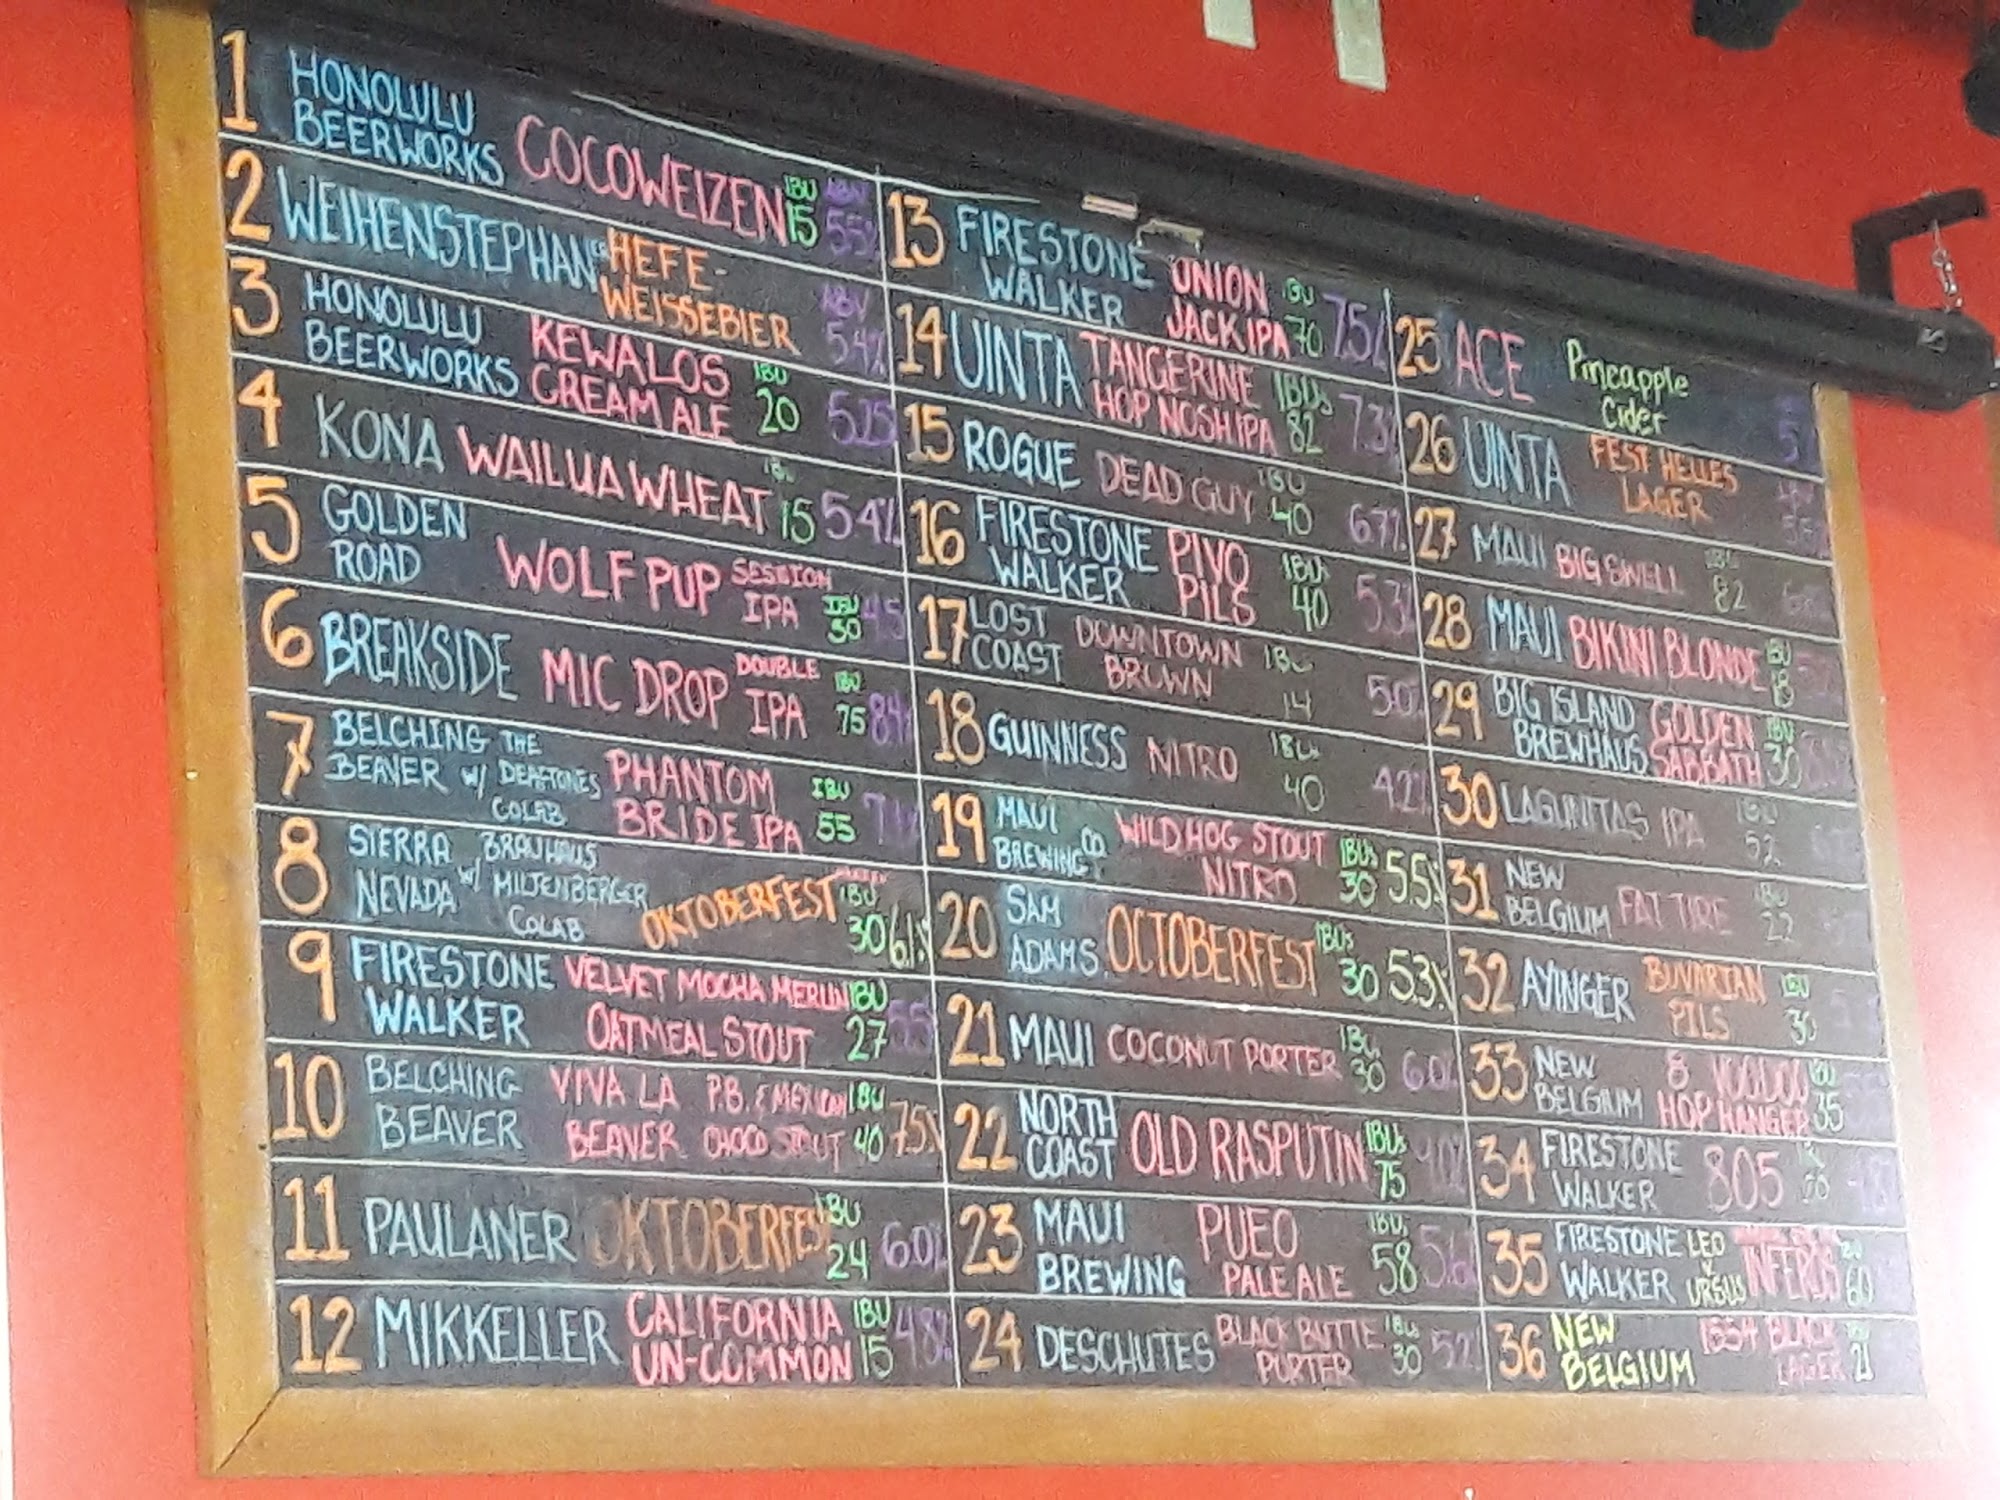 1 HONOLULU BEERWORKS COCOWEIZEN IBU 15 ABV 5.5%
2 WEIHENSTEPHANER HEFE-WEISSEBIER ABV 5.4%
3 HONOLULU BEERWORKS KEWALOS CREAM ALE IBU 20 5.25
4 KONA WAILUA WHEAT 15 5.4%
5 GOLDEN ROAD WOLF PUP SESSION IPA IBU 30 4.5
6 BREAKSIDE MIC DROP DOUBLE IPA IBU 75 8.4%
7 BELCHING THE BEAVER W/ DEAFTONES COLAB PHANTOM BRIDE IPA IBU 55
8 SIERRA NEVADA W/ BRAUHAUS MILTENBERGER COLAB OKTOBERFEST IBU 30 6.1%
9 FIRESTONE WALKER VELVET MOCHA MERLIN OATMEAL STOUT IBU 27 5.5
10 BELCHING BEAVER VIVA LA BEAVER P.B. & MEXICAN CHOCO STOUT IBU 40 7.5%
11 PAULANER OKTOBERFEST IBU 24 6.0%
12 MIKKELLER CALIFORNIA UN-COMMON IBU 15 4.8%
13 FIRESTONE WALKER UNION JACK IPA IBU 70 7.5%
14 UINTA TANGERINE HOP NOSH IPA IBUs 82 7.3%
15 ROGUE DEAD GUY IBU 40 6.7%
16 FIRESTONE WALKER PIVO PILS IBUs 40 5.3%
17 LOST COAST DOWNTOWN BROWN IBU 14 5.0%
18 GUINNESS NITRO IBUs 40 4.2%
19 MAUI BREWING CO. WILD HOG STOUT NITRO IBUs 30 5.5%
20 SAM ADAMS OCTOBERFEST IBUs 30 5.3%
21 MAUI COCONUT PORTER IBU 30 6.0%
22 NORTH COAST OLD RASPUTIN IBUs 75
23 MAUI BREWING PUEO PALE ALE IBUs 58 5.6%
24 DESCHUTES BLACK BUTTE PORTER IBUs 30 5.2%
25 ACE Pineapple Cider 5%
26 UINTA FEST HELLES LAGER
27 MAUI BIG SWELL IBU 82
28 MAUI BIKINI BLONDE IBU 18
29 BIG ISLAND BREWHAUS GOLDEN SABBATH IBU 30
30 LAGUNITAS IPA IBU 52
31 NEW BELGIUM FAT TIRE IBU 22
32 AYINGER BUVARIAN PILS IBU 30
33 NEW BELGIUM 8 VOODOO HOP RANGER IBU 35
34 FIRESTONE WALKER 805
35 FIRESTONE WALKER LEO V URSUS INFEROS 60
36 NEW BELGIUM 1554 BLACK LAGER 21